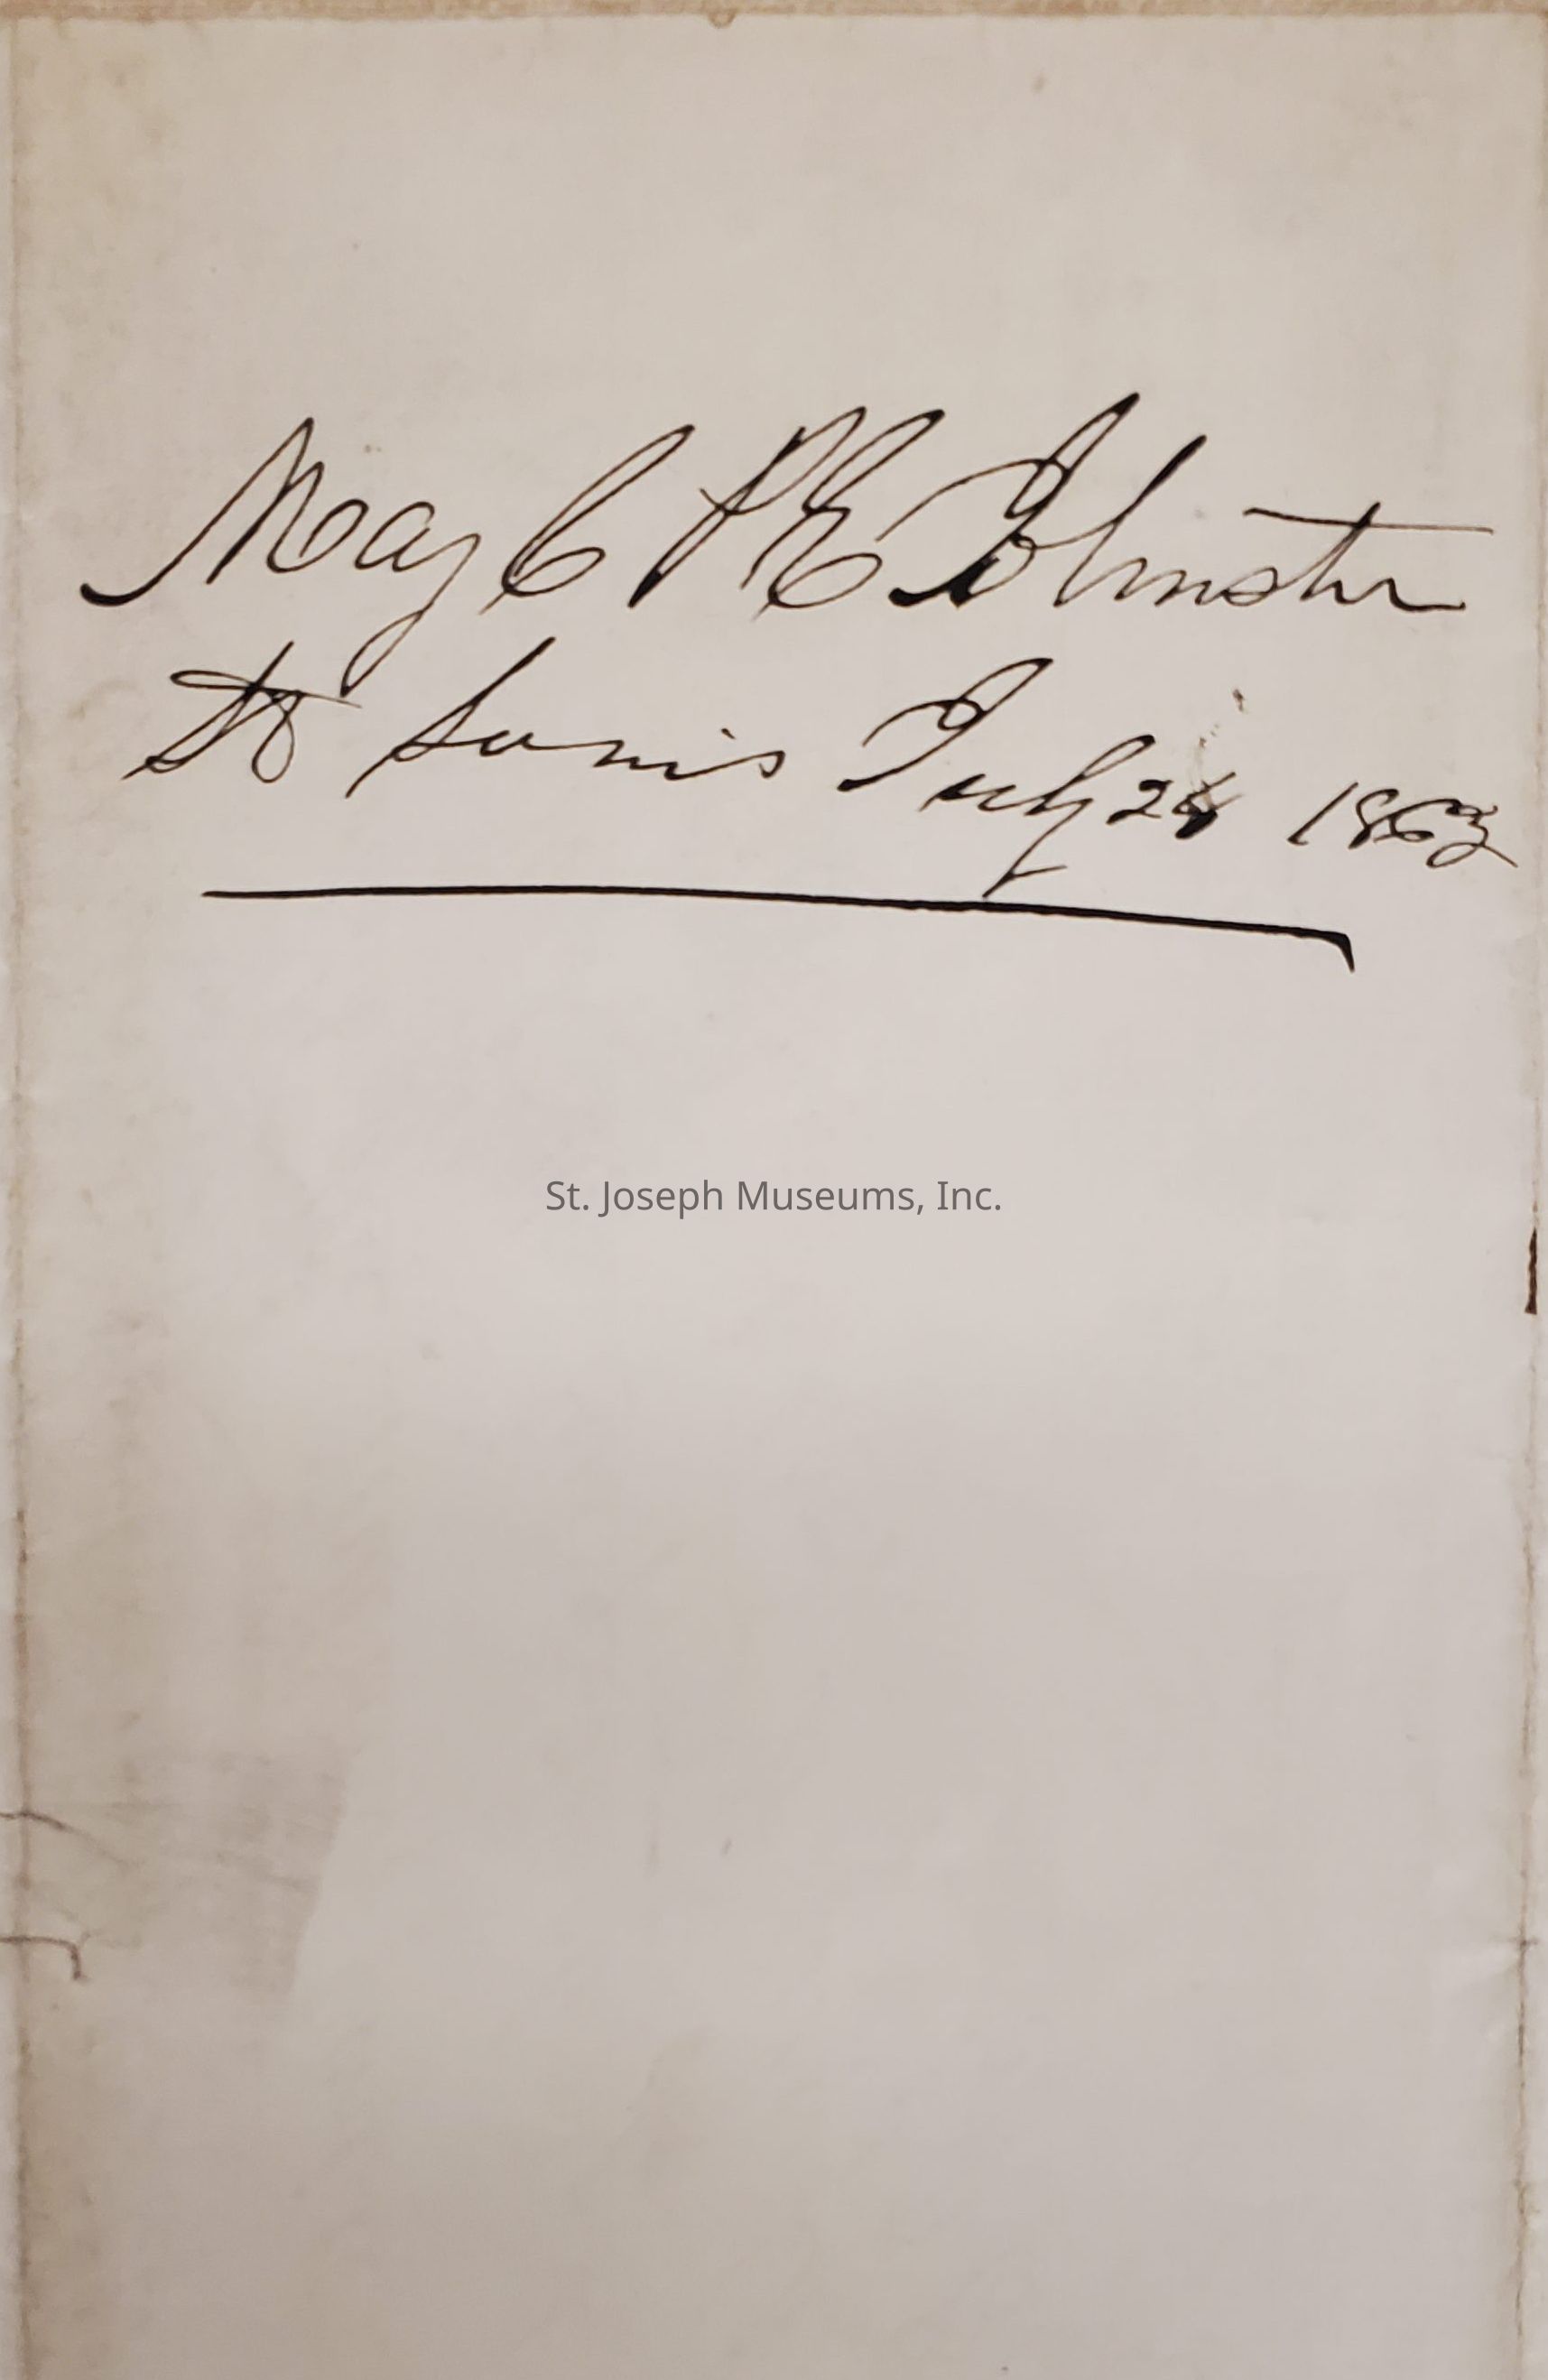 Maj C P E Johnston
St Louis July 24 1863
St. Joseph Museums, Inc.